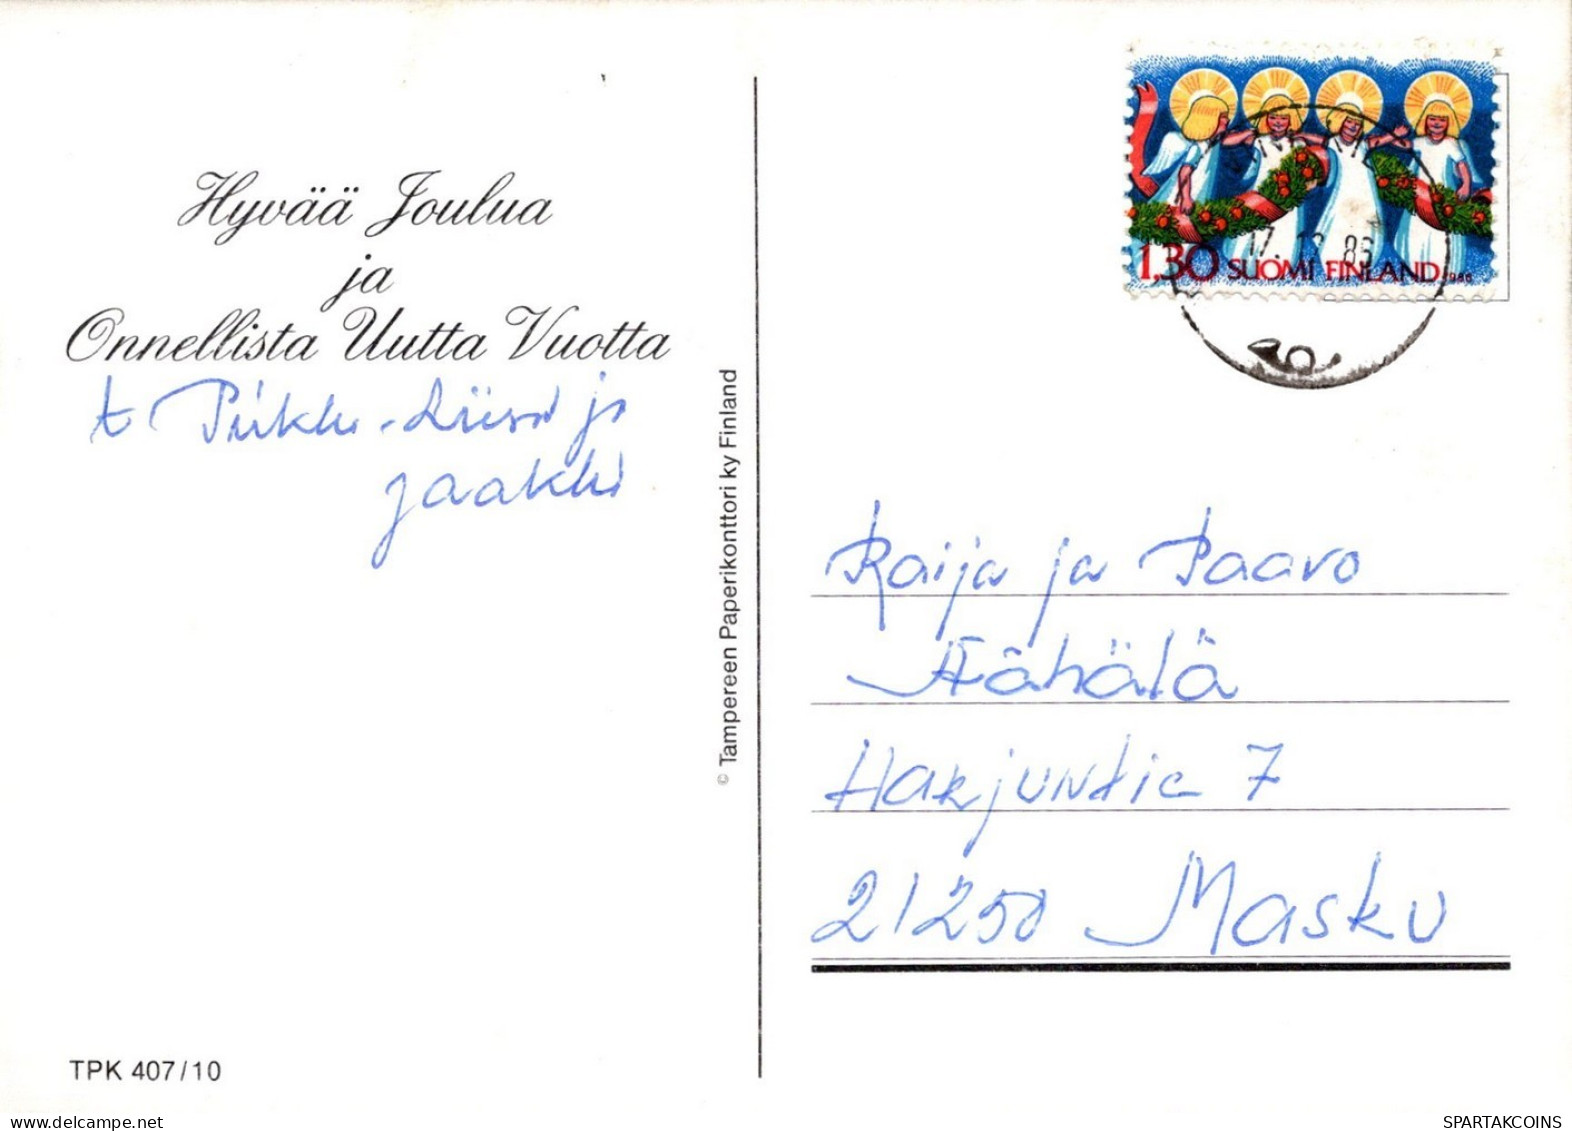 Hyvää Joulua
ja
Onnellista Uutta Vuotta
t Pirkko-Liisa ja
Jaakko
TPK 407/10
© Tampereen Paperikonttori ky Finland
1,30 SUOMI FINLAND 1986
17.12.86
Raija ja Paavo
Hähälä
Harjuntie 7
21250 Masku
SPARTAKCOINS